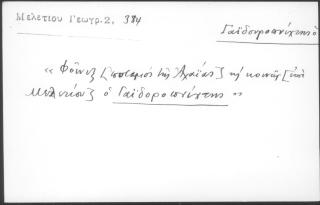 Μελετίου Γεωγρ. 2, 384
Γαϊδουροπνίχτης ὁ
« Φοῖνιξ [ποταμὸς τῆς Ἀχαΐας] κοινῶς [ἐπὶ
Μελετίου] ὁ Γαϊδοροπνίχτης »